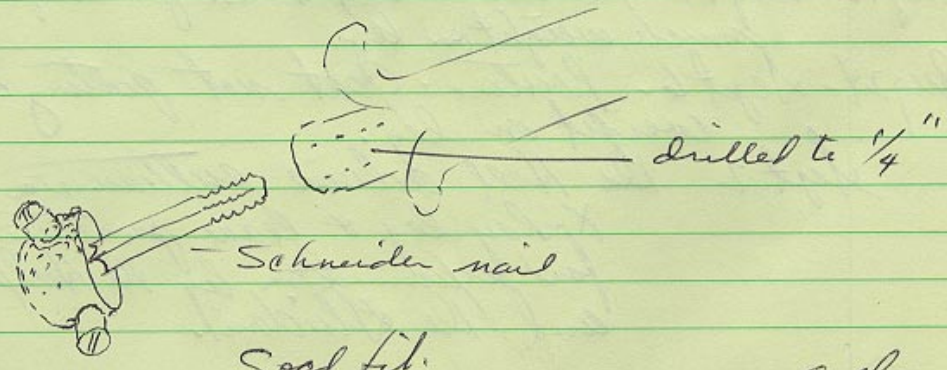 drilled to 1/4"
Schneider nail
Good fit.